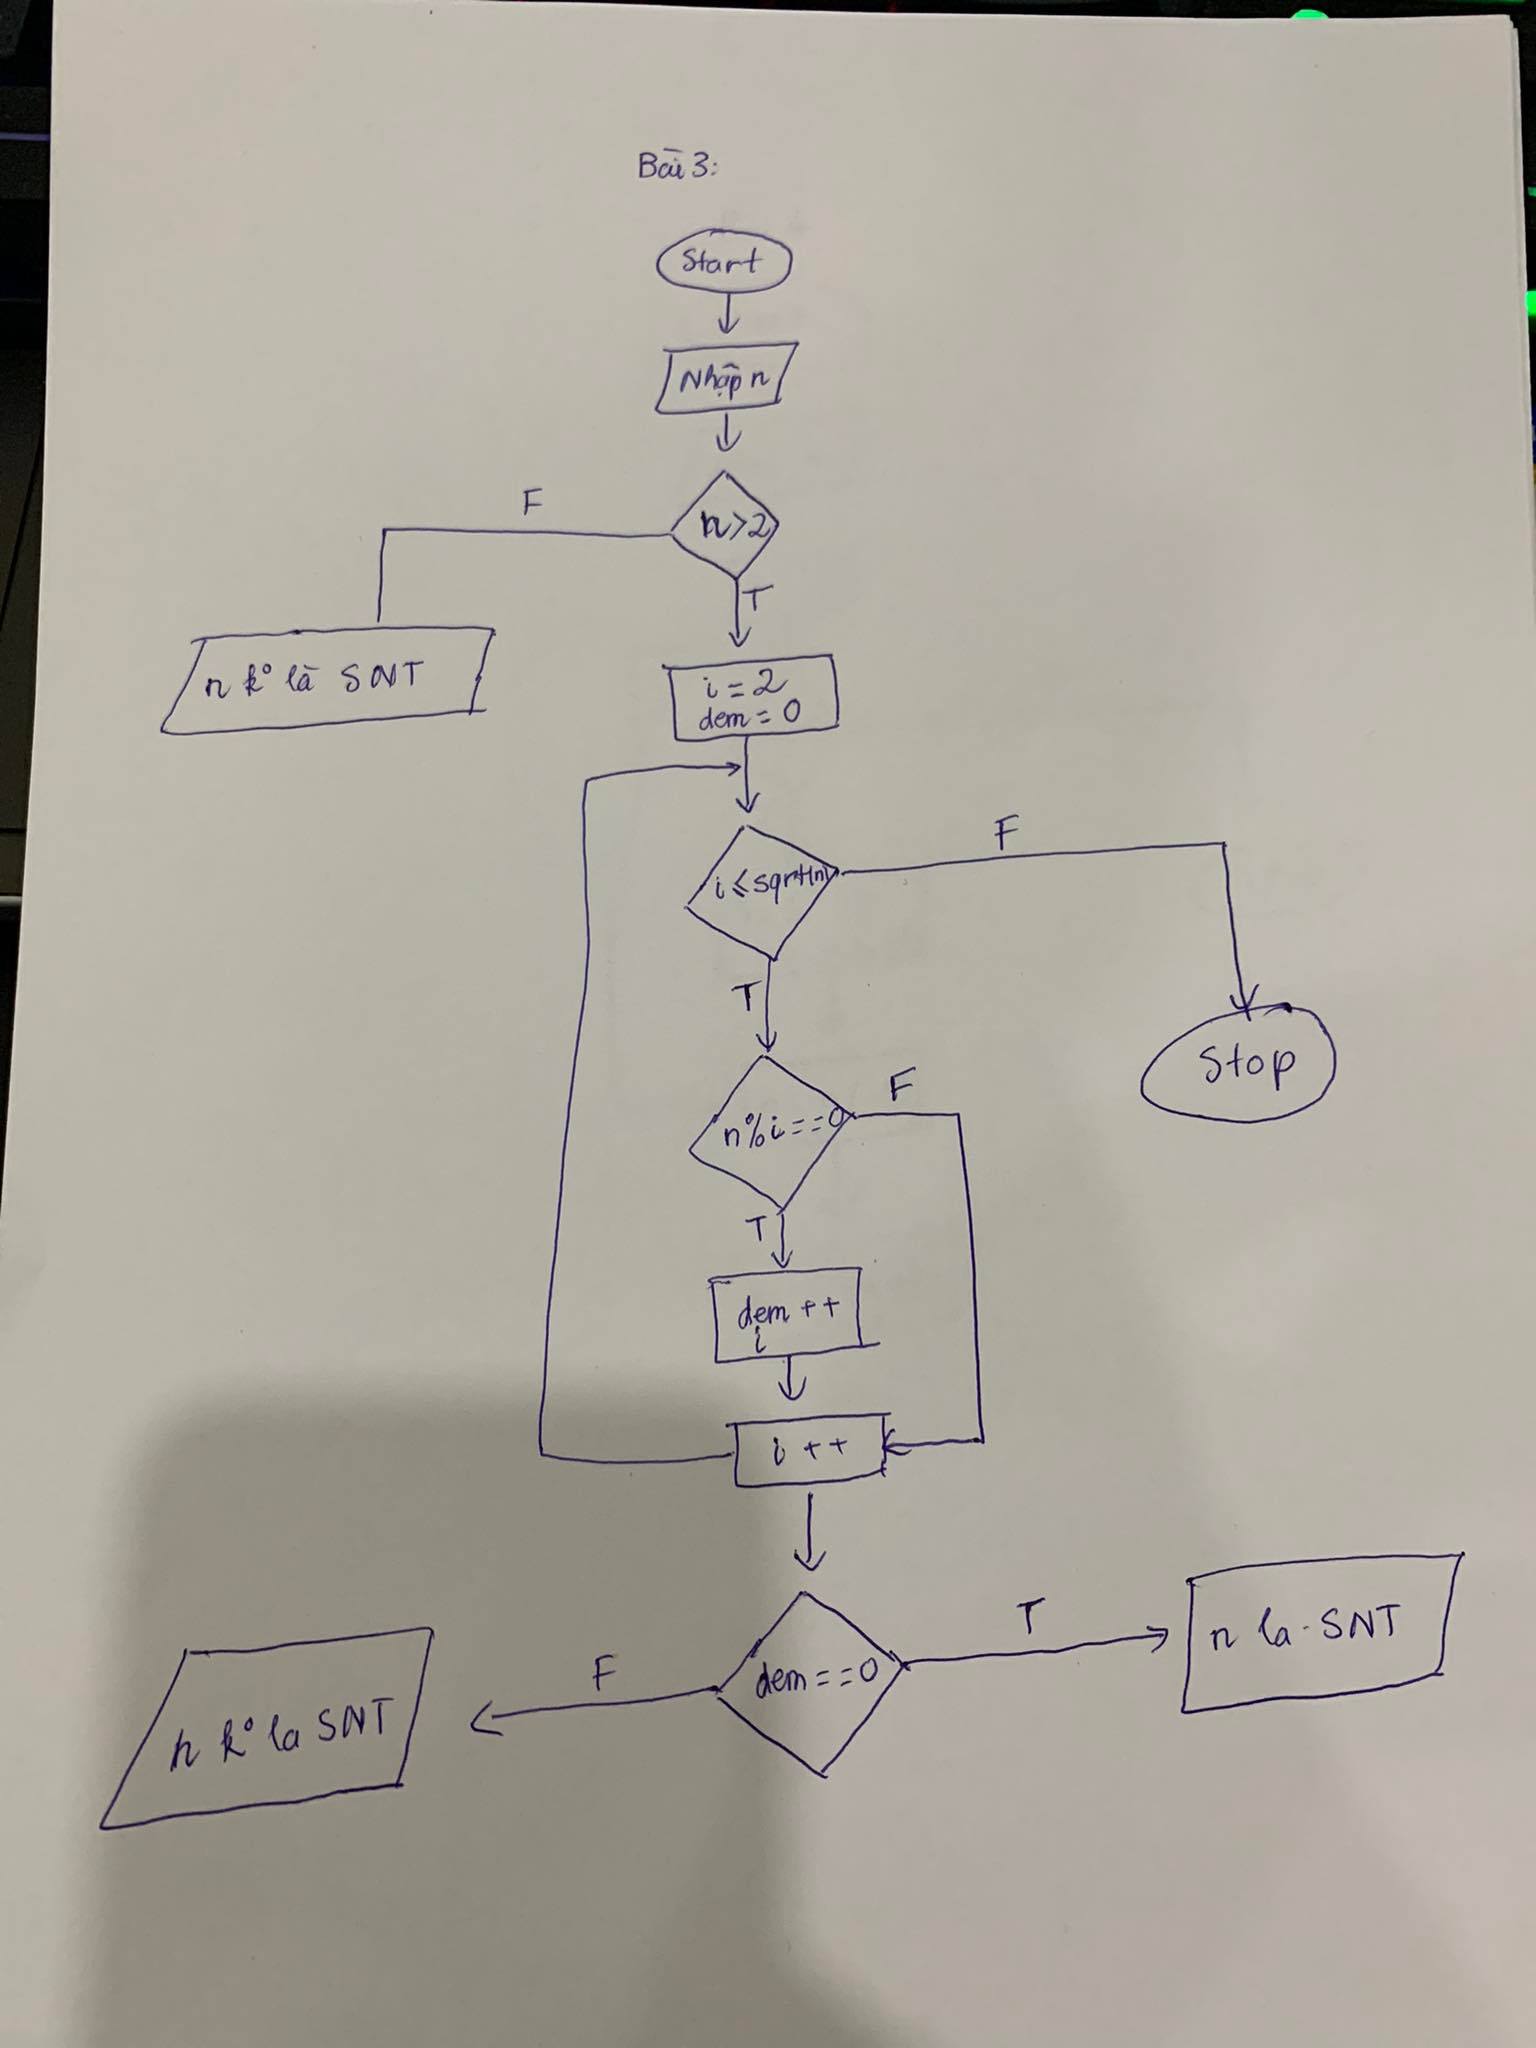 Bài 3:
Start
Nhập n
n>2
F
T
n ko là SNT
i = 2
dem = 0
i ≤ sqrt(n)
F
T
Stop
n%i==0
F
T
dem ++
i
i ++
dem==0
F
T
n ko la SNT
n la SNT